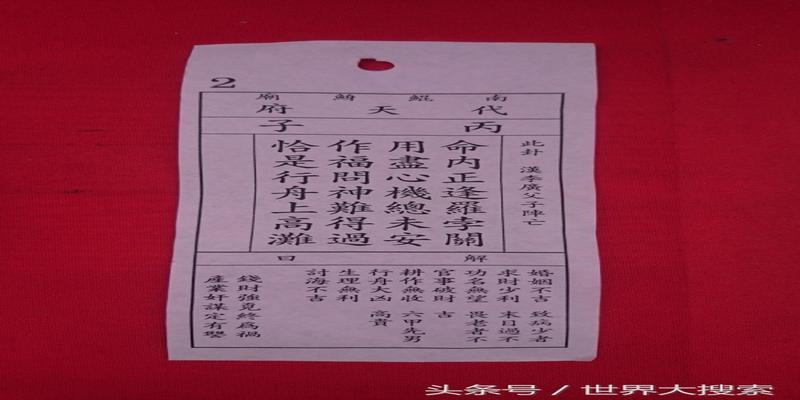 2
南鯤鯓廟
代天府
丙子
此卦 漢李廣父子陣亡
命內正逢羅孛關
用盡心機總未安
作福問神難得過
恰是行舟上高灘
解曰
婚姻不吉 致病少者
求財少利 末日過不
功名無望 畏老者不
官事破財 吉
耕作無收 六甲先男
行舟大凶 高貴
生理無利
討海不吉
錢財強覓終爲禍
產業奸謀定有
头条号 / 世界大搜索